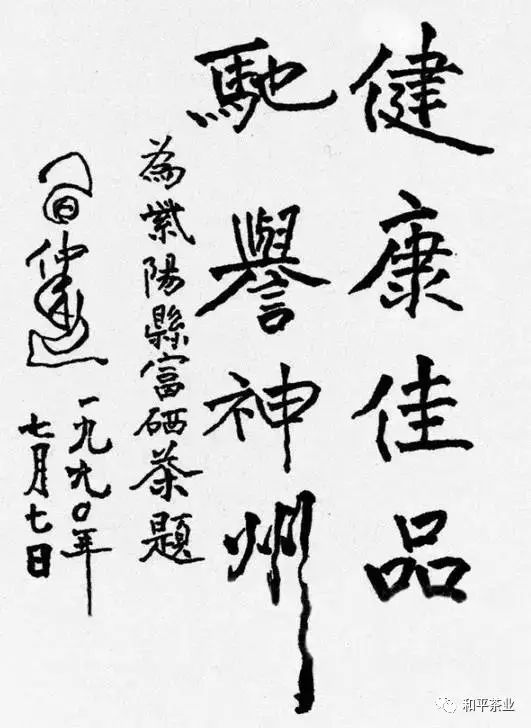 健康佳品
馳譽神州
為紫陽縣富硒茶題
一九九〇年
七月七日
和平茶业